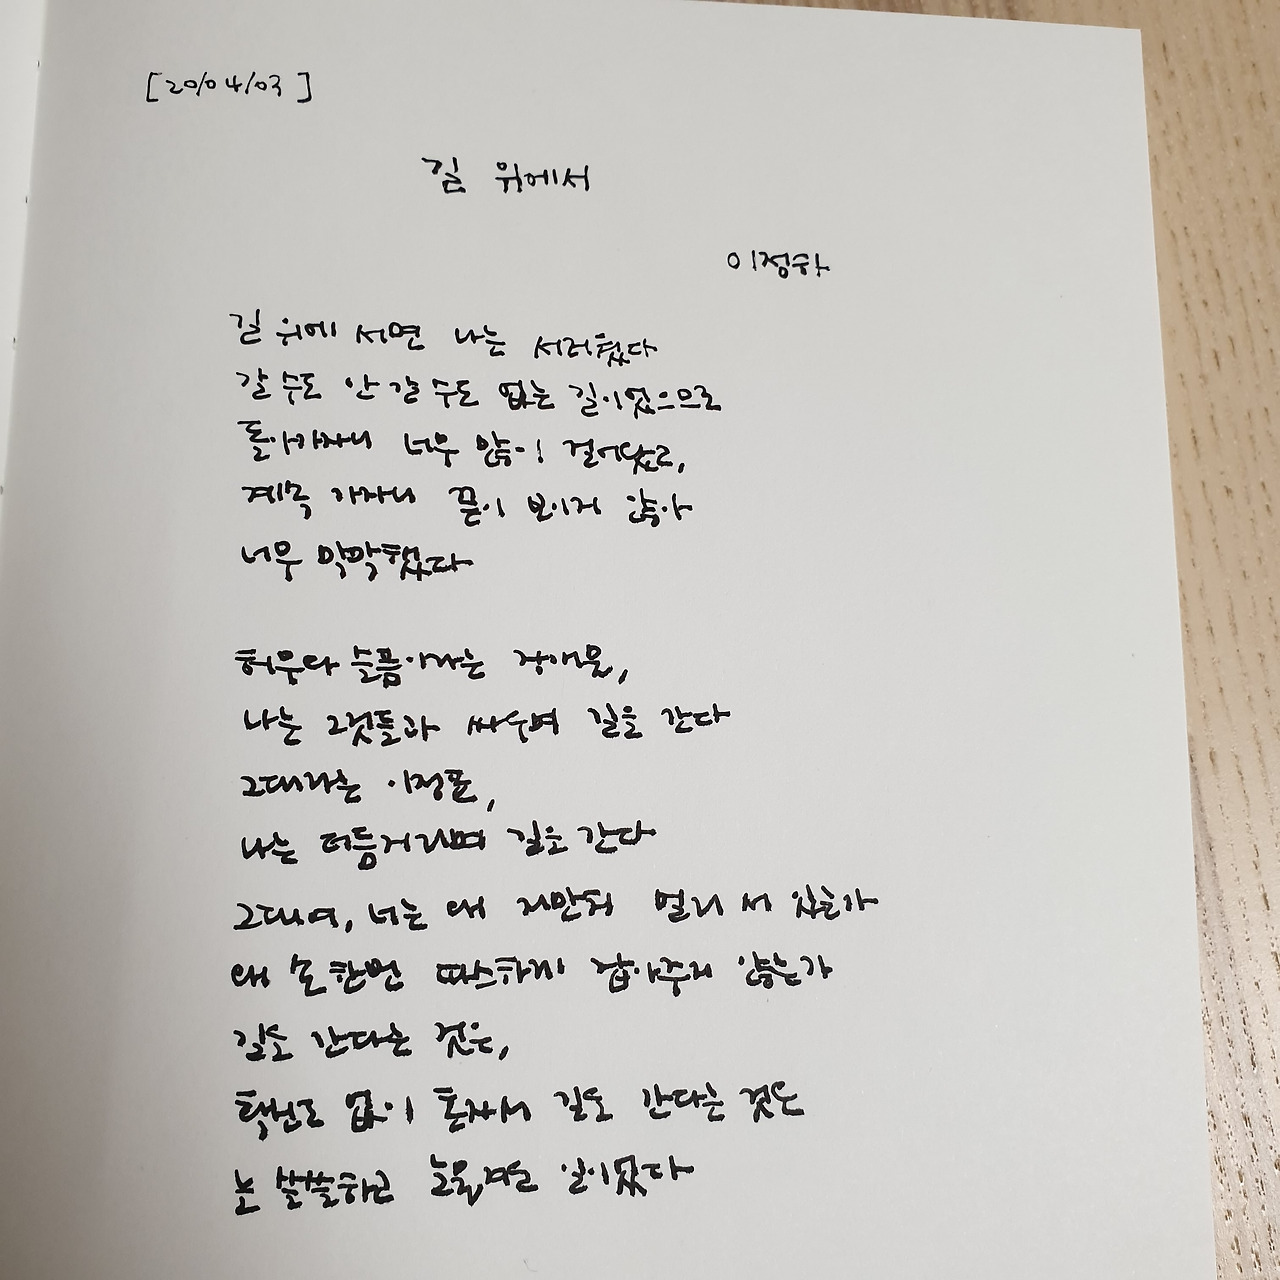 [20/04/03]
길 위에서
이정하
길 위에 서면 나는 서러웠다
갈 수도 안 갈 수도 없는 길이었으므로
돌아가자니 너무 많이 걸어왔고,
계속 가자니 끝이 보이지 않아
너무 막막했다
허무와 슬픔이라는 장애물,
나는 그것들과 싸우며 길을 간다
그대라는 이정표,
나는 더듬거리며 길을 간다
그대여, 너는 왜 저만치 멀리 서 있는가
왜 손 한번 따스하게 잡아주지 않는가
길을 간다는 것은,
확신도 없이 혼자서 길을 간다는 것은
늘 쓸쓸하고 눈물겨운 일이었다